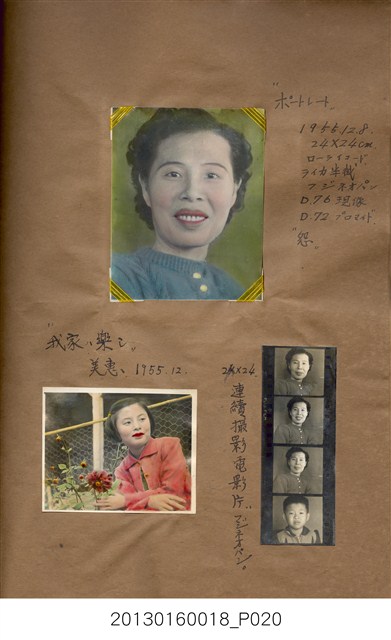 "ポートレート"
1955.12.8.
24×24cm
ローライコード
ライカ半截
フジネオパン
D.76 現像
D.72 ブロマイド
"怨"
"我家ハ楽シ"
美恵、1955.12.
24×24
連續撮影電影片"
フジネオパン。
20130160018_P020